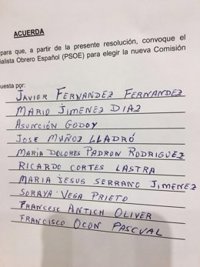 ACUERDA
para que, a partir de la presente resolución, convoque el
ialista Obrero Español (PSOE) para elegir la nueva Comisión
uesta por:
JAVIER FERNANDEZ FERNANDEZ
MARIO JIMENEZ DIAZ
ASUNCIÓN GODOY
JOSE MUÑOZ LLADRÓ
MARIA DOLORES PADRON RODRIGUEZ
RICARDO CORTES LASTRA
MARIA JESUS SERRANO JIMENEZ
SORAYA VEGA PRIETO
FRANCESC ANTICH OLIVER
FRANCISCO OCON PASCUAL